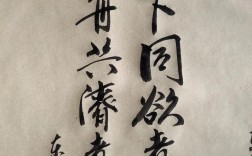 下同欲者
舟共濟者